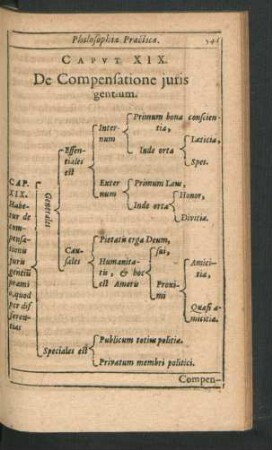 Philosophiæ Practicæ.
CAPVT XIX.
De Compensatione juris
gentium.
CAP.
XIX.
Habe-
tur de
com-
pensa-
tionū
juris
gentiū
præmi
o, quod
per dif
ferenti
Generales
Essen-
tiales
est
Inter
num
Primum bona conscien-
tia,
Inde orta
Lætitia,
Spes.
Exter
num
Primum Laus,
Inde orta
Honor,
Divitiæ.
Cau-
sales
Pietatis erga Deum,
Humanita-
tis, & hoc
est Amoris
sui,
Proxi-
mi
Amici-
tia.
Quasi a-
micitia.
Speciales est
Publicum totius politiæ.
Privatum membri politici.
Compen-